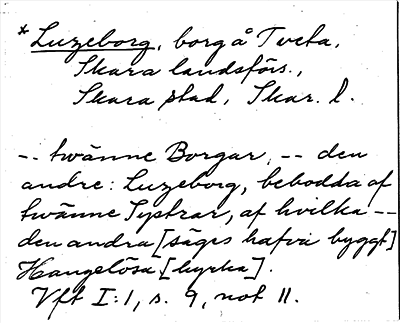 *Luzeborg, borg å Tveta,
Skara landsförs.,
Skara stad, Skar. l.
-- twänne Borgar, -- den
andre: Luzeborg, bebodda af
twänne Systrar, af hvilka --
den andra [säges hafva byggt]
Hangelösa [kyrka].
Vft I:1, s. 9, not 11.